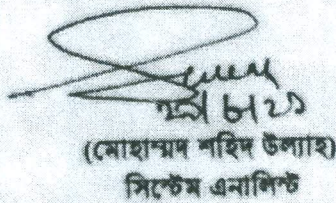 (মোহাম্মদ শহিদ উল্যাহ)
সিস্টেম এনালিস্ট